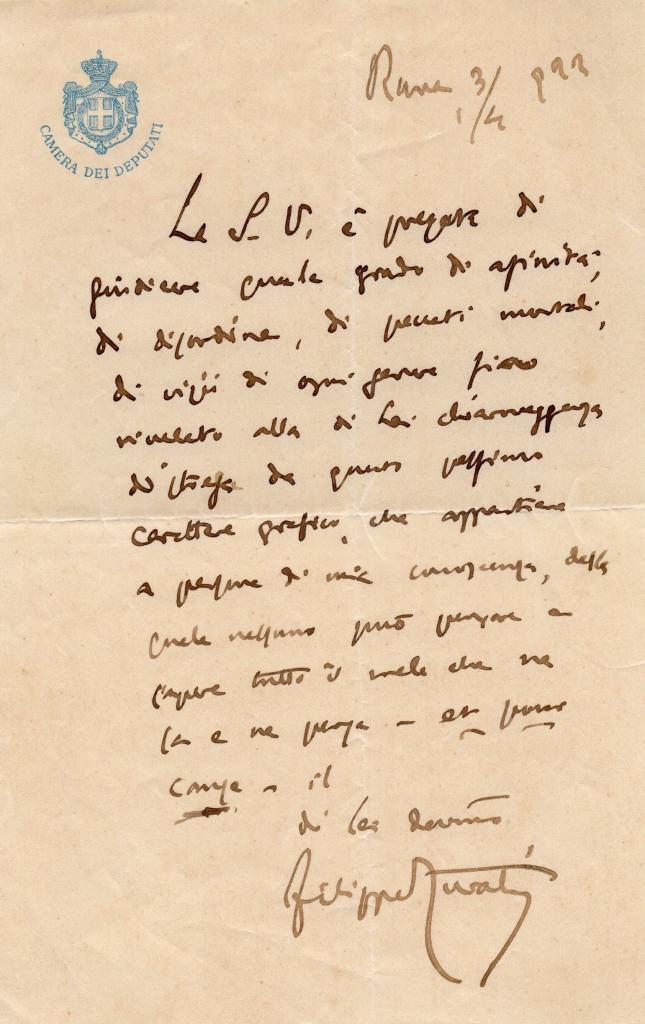 CAMERA DEI DEPUTATI
Roma 3/4 922
La S. V. è pregata di
giudicare quale grado di
di disordine, di peccati mortali,
di vizii di ogni genere siano
rivelato alla di Lei chiaroveggenza
da questo pessimo
carattere grafico, che appartiene
a persona di mia conoscenza, della
quale nessuno può pensare e
sapere tutto il male che ne
so e ne penso - et pour
cause - il
di Lei devmo
Filippo Turati